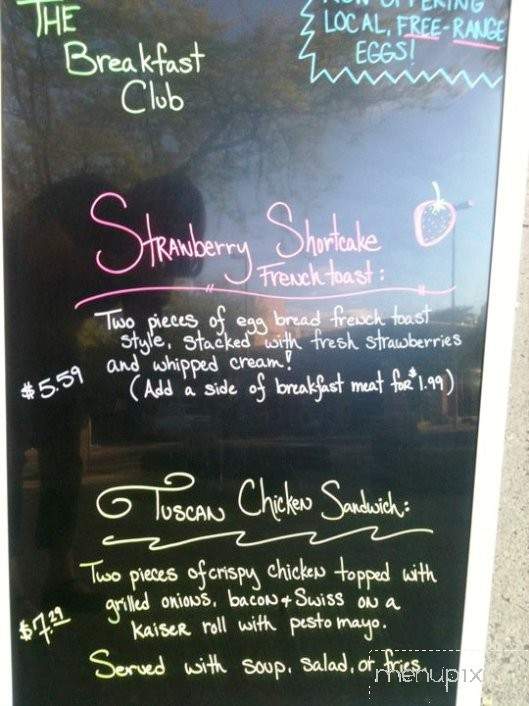 THE
Breakfast
Club
NOW OFFERING
LOCAL, FREE-RANGE
EGGS!
Strawberry Shortcake
French toast:
Two pieces of egg bread french toast
style, stacked with fresh strawberries
and whipped cream!
$5.59
(Add a side of breakfast meat for $1.99)
Tuscan Chicken Sandwich:
Two pieces of crispy chicken topped with
grilled onions, bacon + Swiss on a
$7.29
Kaiser roll with pesto mayo.
Served with soup, salad, or fries.
menupix